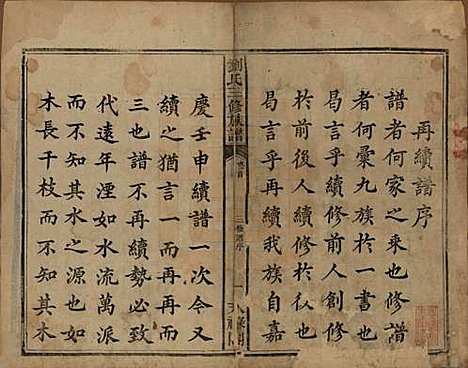 再續譜序
譜者何家之乘也修譜
者何彙九族於一書也
曷言乎續修前人創修
於前後人續修於後也
曷言乎再續我族自嘉
劉氏三修族譜
卷首
慶壬申續譜一次今又
續之猶言一而再再而
三也譜不再續勢必致
代遠年湮如水流萬派
而不知其水之源也如
木長千枝而不知其木